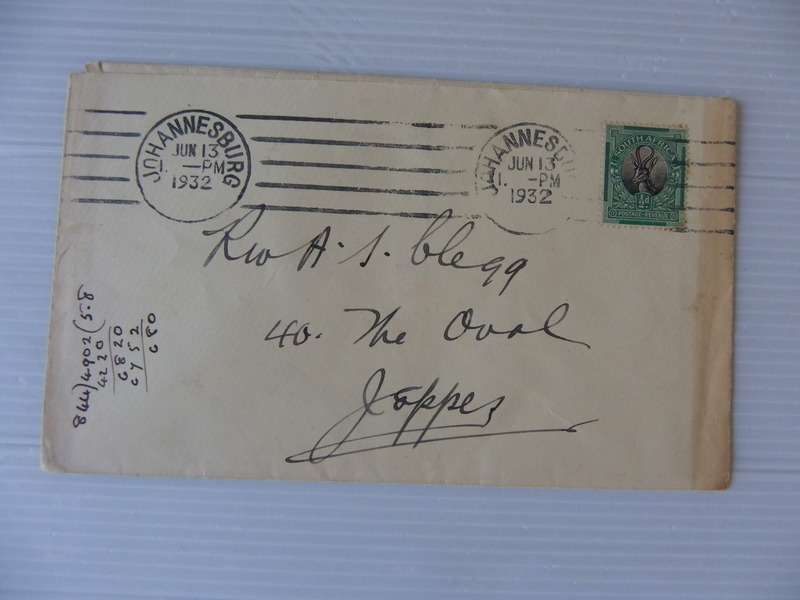 JOHANNESBURG
JUN 13
1. -PM
1932
JOHANNESBURG
JUN 13
1. -PM
1932
SOUTH AFRICA
½d
POSTAGE-REVENUE
Rev A. S. Clegg
40. The Oval
Jeppes
844)4902(5.8
4220
6820
6752
680